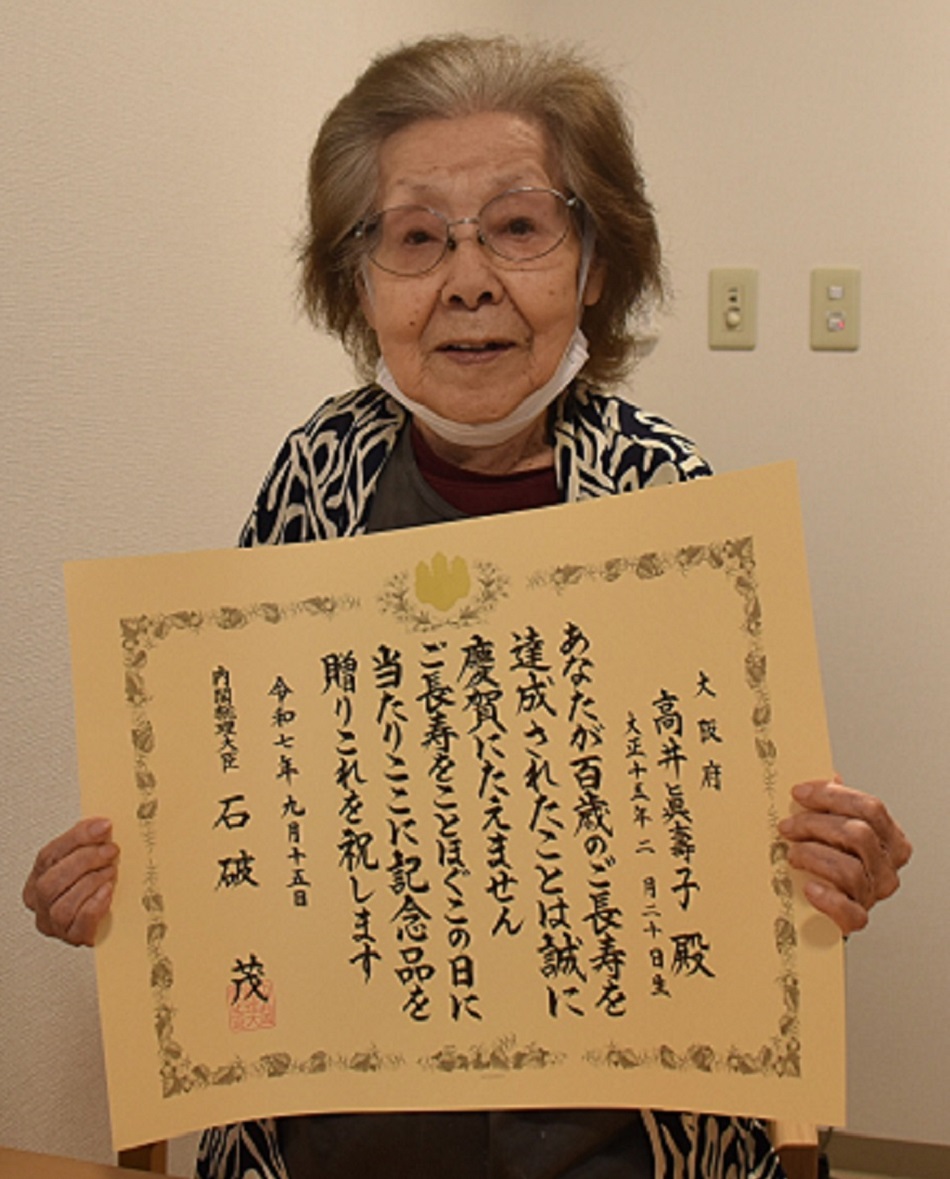 大阪府
高井眞壽子殿
大正十五年二月二十日生
あなたが百歳のご長寿を
達成されたことは誠に
慶賀にたえません
ご長寿をことほぐこの日に
当たりここに記念品を
贈りこれを祝します
令和七年九月十五日
内閣総理大臣 石破 茂